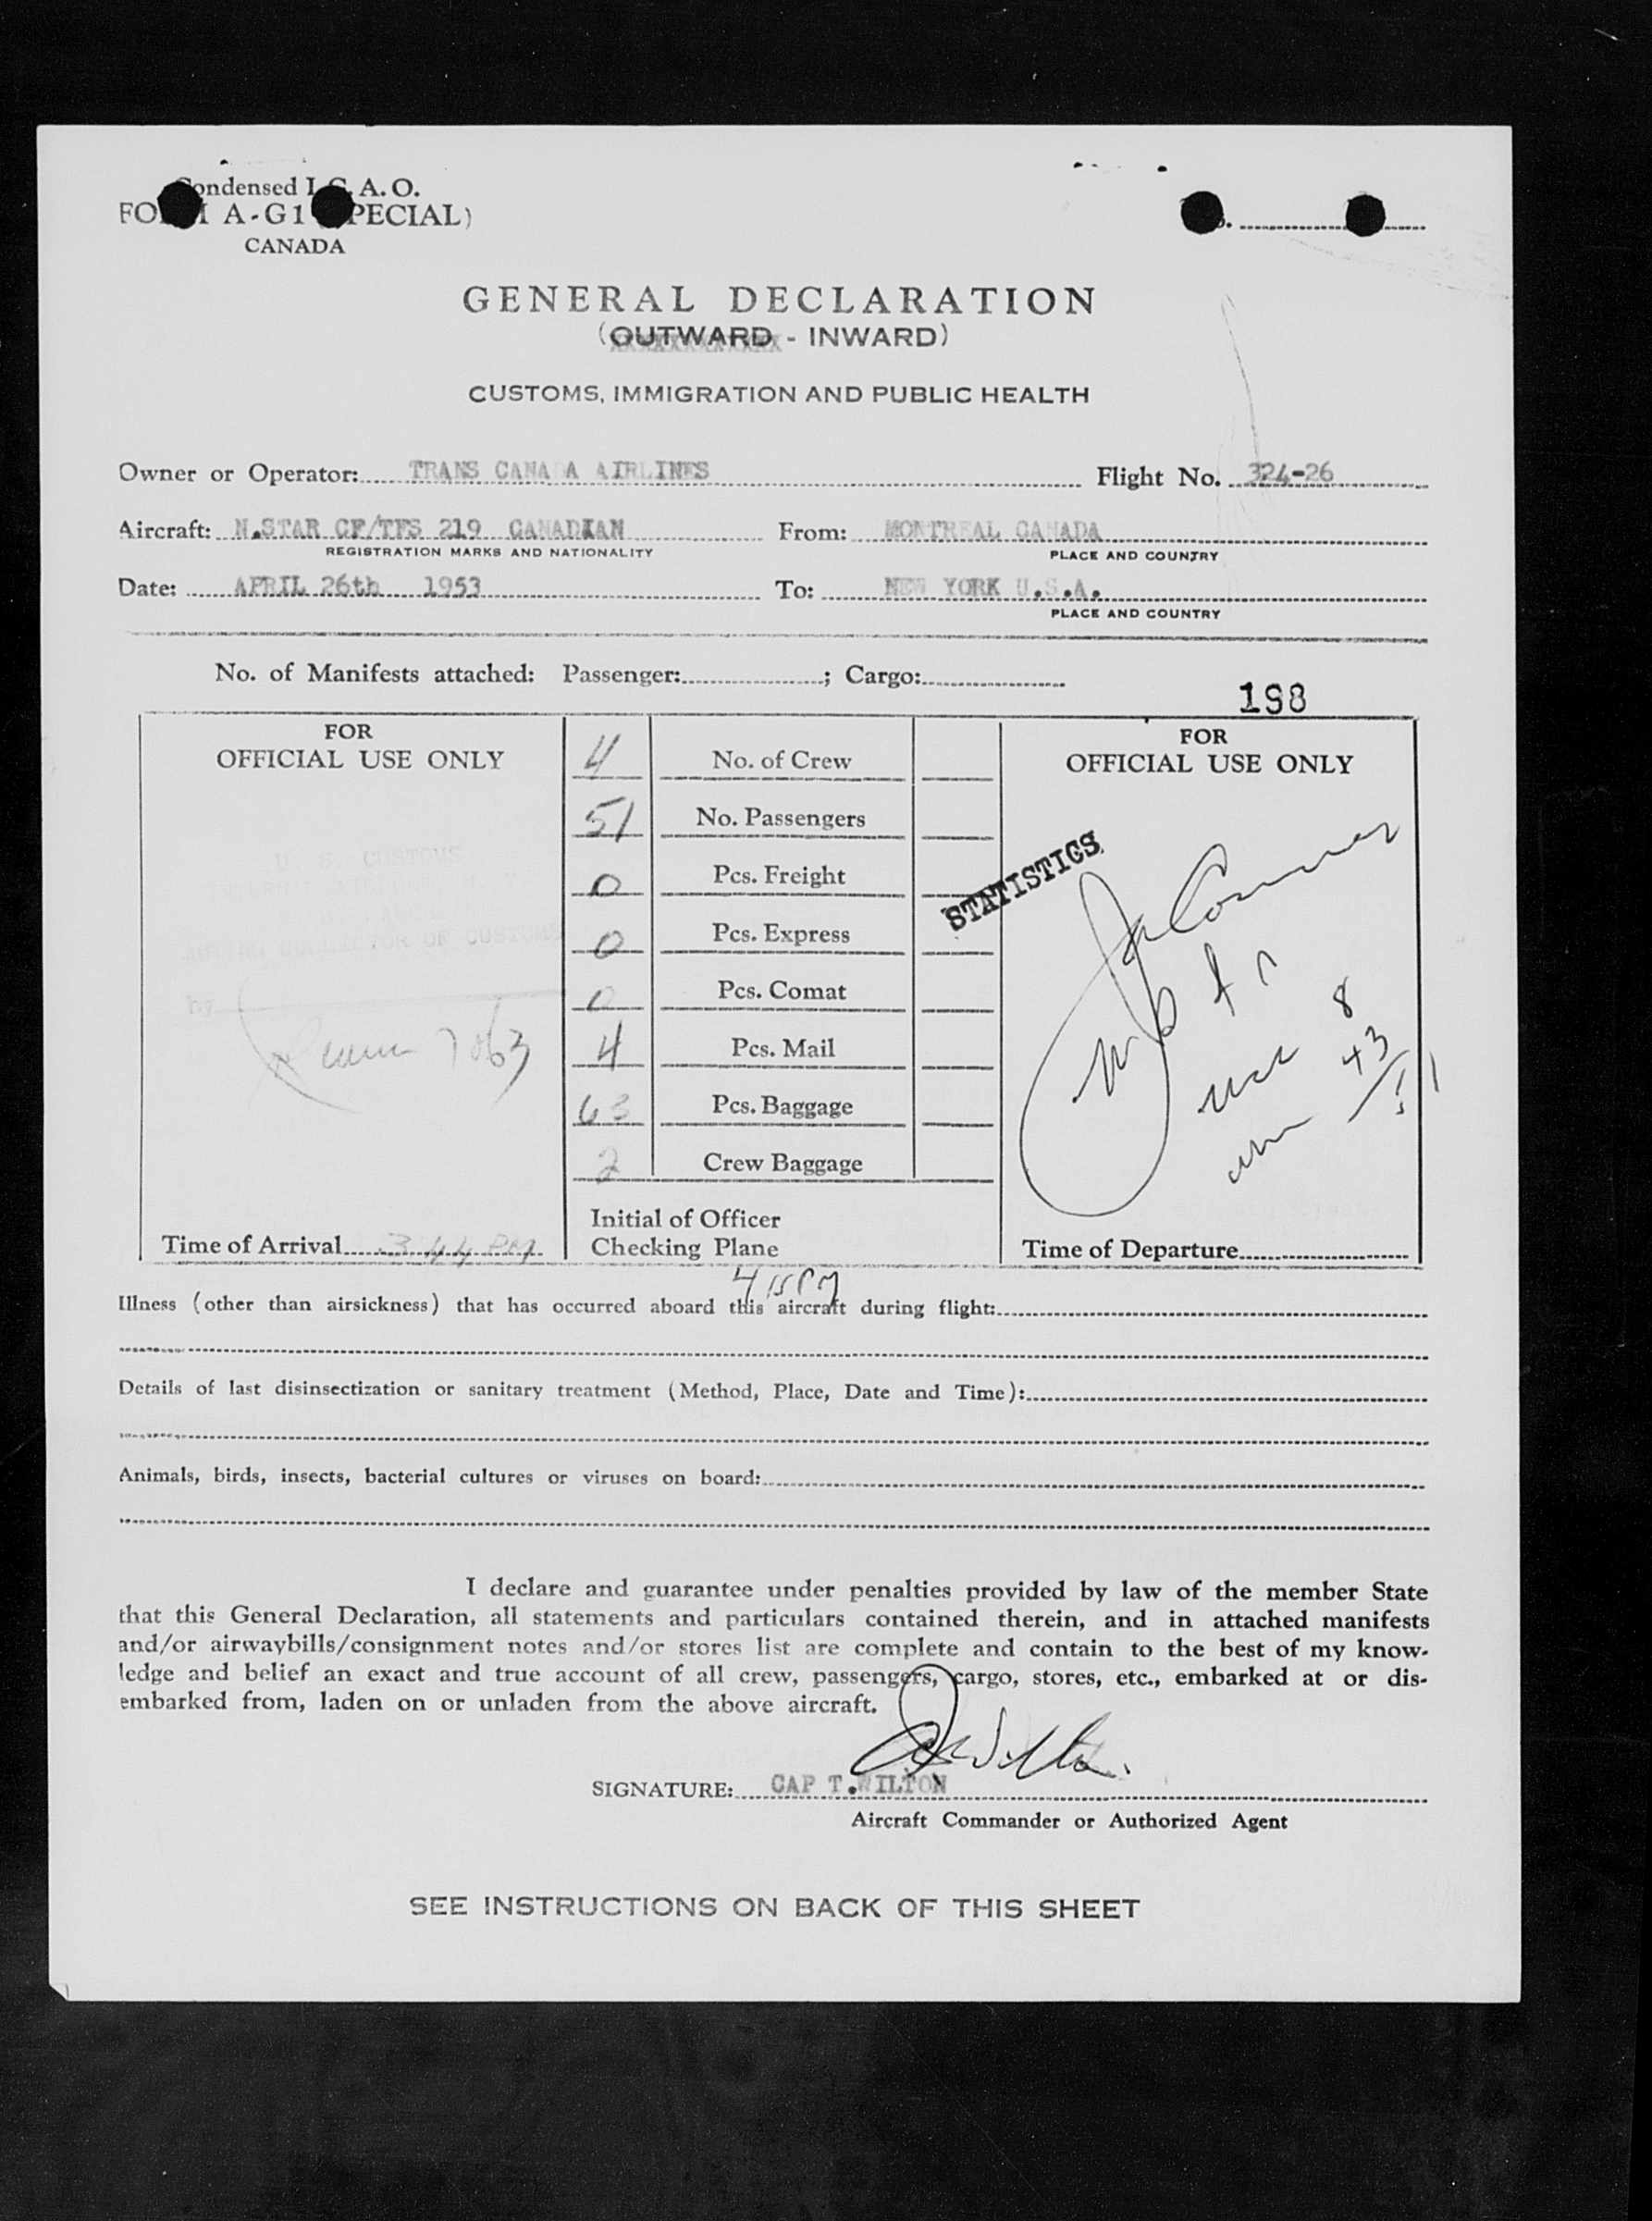 Condensed I.C.A.O.
FORM A-G1 (SPECIAL)
CANADA
GENERAL DECLARATION
(OUTWARD - INWARD)
CUSTOMS, IMMIGRATION AND PUBLIC HEALTH
Owner or Operator: TRANS CANADA AIRLINES Flight No. 324-26
Aircraft: N.STAR CF/TFS 219 CANADIAN From: MONTREAL CANADA
REGISTRATION MARKS AND NATIONALITY PLACE AND COUNTRY
Date: APRIL 26th 1953 To: NEW YORK U.S.A.
PLACE AND COUNTRY
No. of Manifests attached: Passenger: ; Cargo:
198
FOR
OFFICIAL USE ONLY
U. S. CUSTOMS
COLLECTOR OF CUSTOMS
by
Time of Arrival 3 44 PM
4 No. of Crew
51 No. Passengers
0 Pcs. Freight
0 Pcs. Express
0 Pcs. Comat
4 Pcs. Mail
63 Pcs. Baggage
2 Crew Baggage
Initial of Officer
Checking Plane
4 15 PM
FOR
OFFICIAL USE ONLY
STATISTICS
8
43
51
Time of Departure
Illness (other than airsickness) that has occurred aboard this aircraft during flight:
Details of last disinsectization or sanitary treatment (Method, Place, Date and Time):
Animals, birds, insects, bacterial cultures or viruses on board:
I declare and guarantee under penalties provided by law of the member State
that this General Declaration, all statements and particulars contained therein, and in attached manifests
and/or airwaybills/consignment notes and/or stores list are complete and contain to the best of my know-
ledge and belief an exact and true account of all crew, passengers, cargo, stores, etc., embarked at or dis-
embarked from, laden on or unladen from the above aircraft.
SIGNATURE: CAP T.WILTON
Aircraft Commander or Authorized Agent
SEE INSTRUCTIONS ON BACK OF THIS SHEET